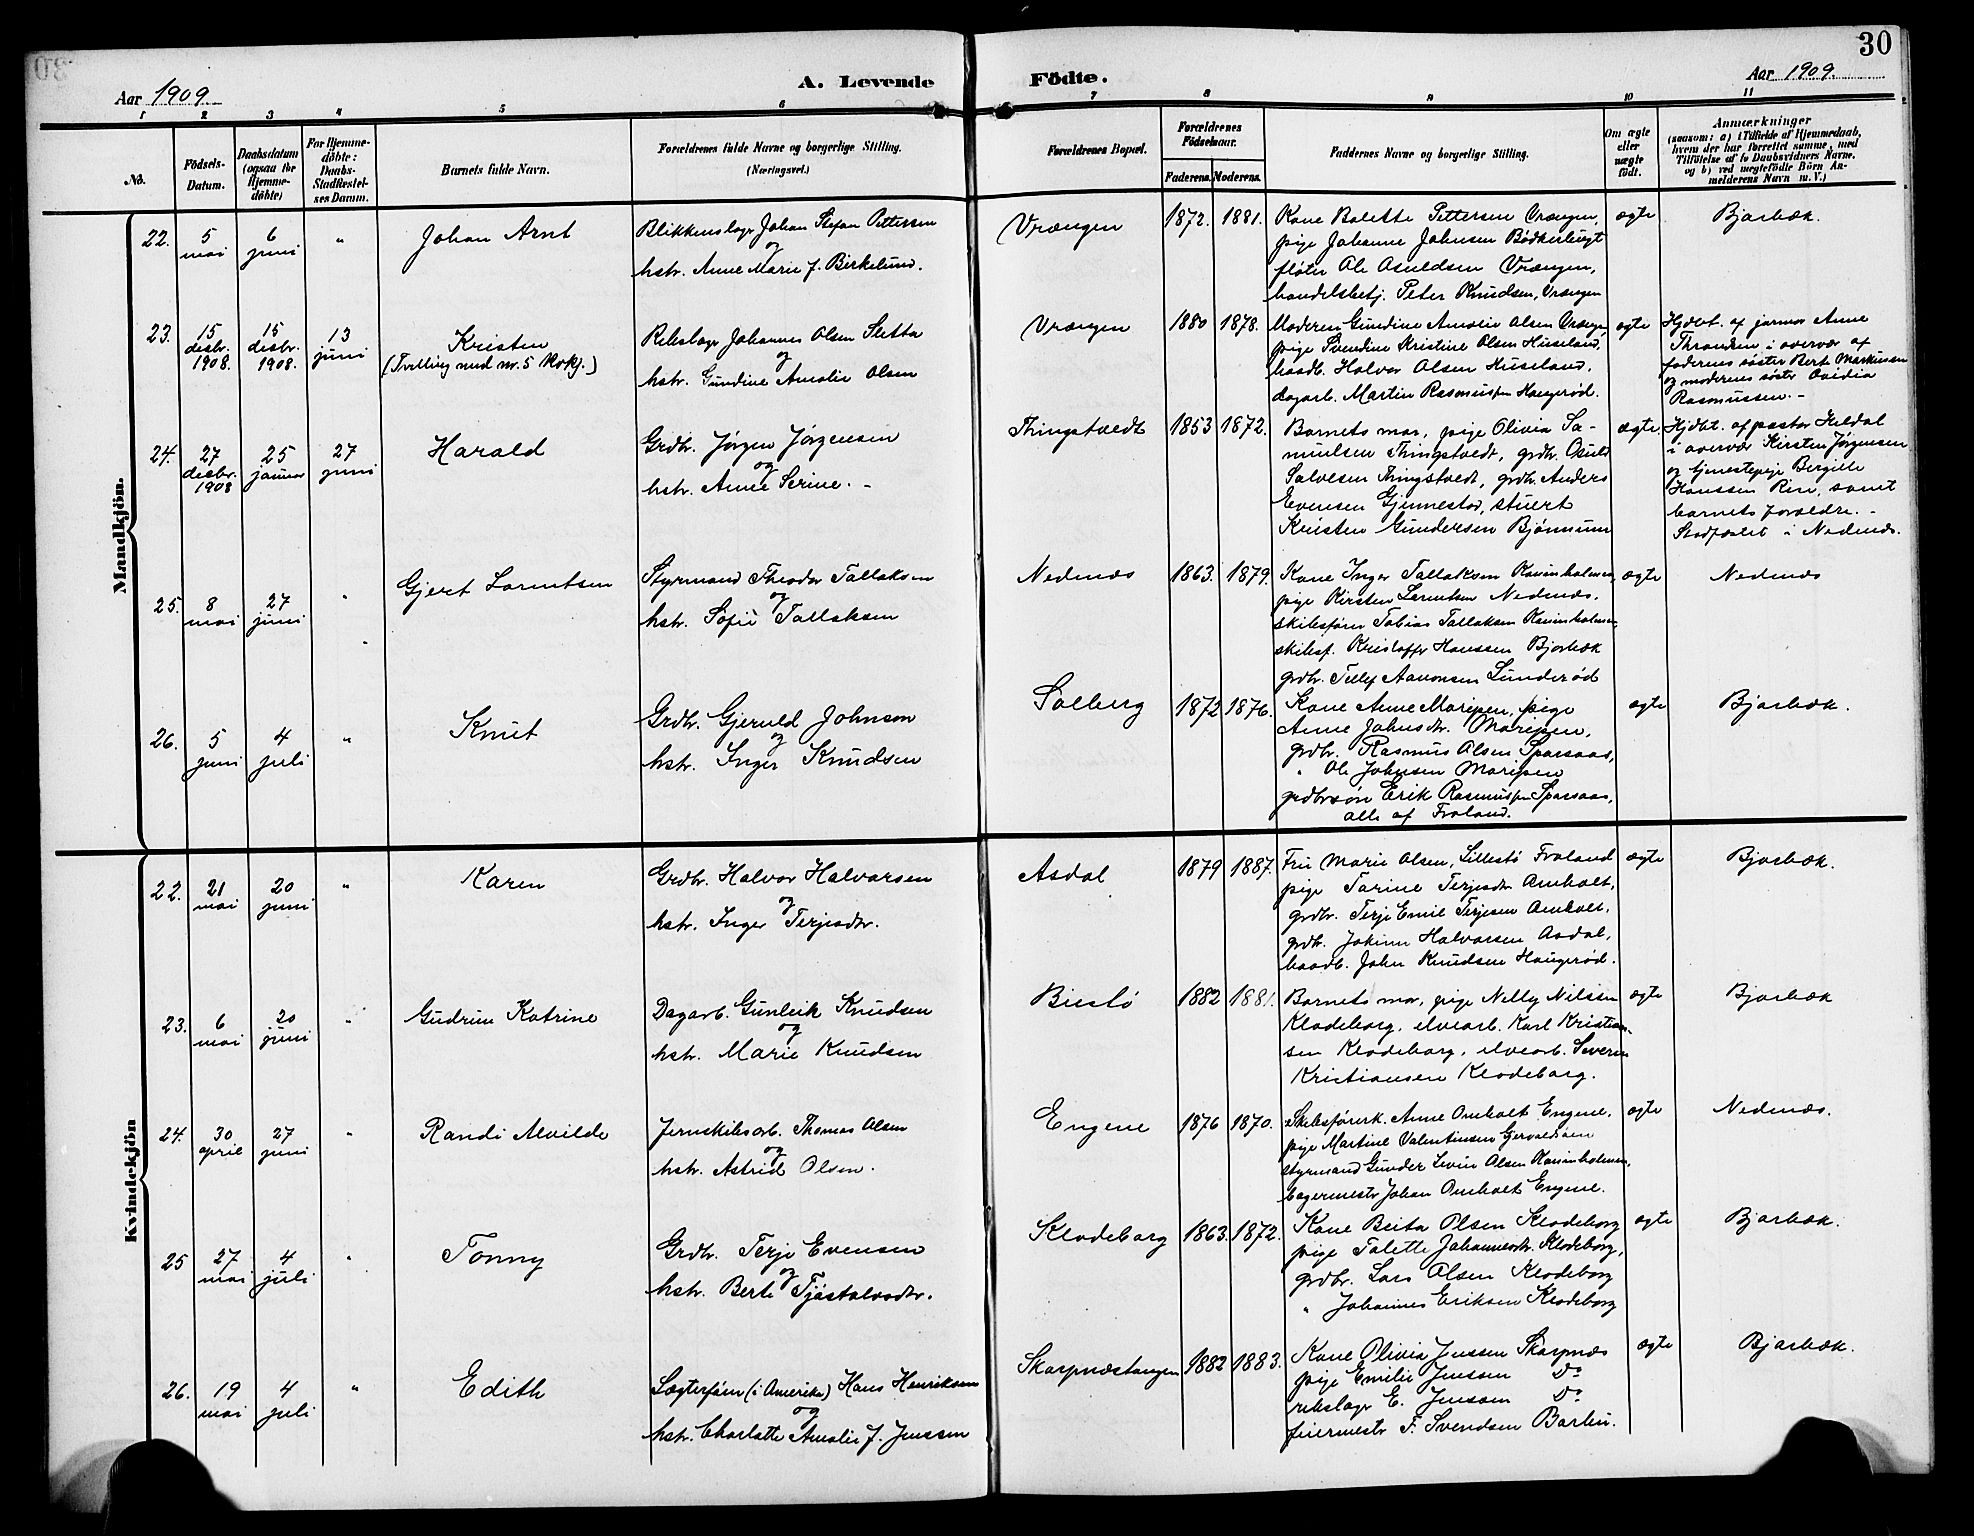 30
Aar 1909. A. Levende Födte. Aar 1909.
1 2 3 4 5 6 7 8 9 10 11
No.
Födsels-
Datum.
Daabsdatum
(ogsaa for
Hjemme-
döbte)
For Hjemme-
döbte:
Daabs-
Stadfæstel-
ses Datum.
Barnets fulde Navn.
Forældrenes fulde Navne og borgerlige Stilling.
(Næringsvei.)
Forældrenes Bopæl.
Forældrenes
Födselsaar.
Faderens. Moderens.
Faddernes Navne og borgerlige Stilling.
Om ægte
eller
uægte
födt.
Anmærkninger
(saasom: a) i Tilfælde af Hjemmedaab,
hvem der har forrettet samme, med
Tilföielse af to Daabsvidners Navne.
og b) ved uegtefödte Börn An-
melderens Navn m. V.)
Mandkjön.
22. 5 mai 6 juni " Johan Arnt
Blikkenslager Johan Stefan Pettersen
og
hstr. Anne Marie J. Birkelund.
Vrængen 1872. 1881.
Kone Bolette Pettersen Vrængen,
pige Johanne Johnsen
fløter Ole Osuldsen Vrængen,
handelsbetj. Peter Knudsen, Vrængen
ægte Bjorbæk.
23. 15 desbr. 1908. 15 desbr. 1908. 13 juni Kristen
(Tvilling med nr. 5 kvkj.)
Rebslager Johannes Olsen Sletta
og
hstr. Gundine Amalie Olsen
Vrængen 1880 1878.
Moderen Gundine Amalie Olsen
pige Svendine Kristine Olsen Huseland,
baadb. Halvor Olsen Huseland.
dagarb. Martin Rasmussen Haugerød.
ægte Hjdbt. af jormor Anne
i overvær af
faderens søster Berte Markussen
og moderens søster Ovidia
Rasmussen. -
24. 27 desbr. 1908 25 januar 27 juni Harald
Grdbr. Jørgen Jørgensen
og
hstr. Anne Serine. -
Thingstvedt 1853 1872.
Barnets mor, pige Olivia Sa-
muelsen Thingstvedt, grdbr. Osuld
Salvesen Thingstvedt, grdbr. Anders
Evensen Gjennestad, stuert
Kristen Gundersen Bjønnum
ægte Hjdbt. af pastor Heldal
i overvær Kirsten Jørgensen
og tjenestepige Bergille
Hanssen Rin, samt
barnets forældre. -
Stadfæstet i Nedenes.
25. 8 mai 27 juni " Gjert Lorentsen
Styrmand Theodor Tallaksen
og
hstr. Sofie Tallaksen
Nedenæs 1863. 1879.
Kone Inger Tallaksen
pige Kirsten Lorentsen Nedenæs.
skibsfører Tobias Tallaksen
skibsf. Kristoffer Hanssen Bjorbæk
grdbr. Tellef Aavonsen Lunderød
ægte Nedenæs
26. 5 juni 4 juli " Knut
Grdbr. Gjeruld Johnsen
og
hstr. Inger Knudsen
Solberg 1872 1876.
Kone Anne Maripen, pige
Anne Johnsdtr. Maripen,
grdbr. Rasmus Olsen Sparsaas,
" Ole Johnsen Maripen
grdbrsøn Erik Rasmussen Sparsaas,
alle af Froland.
ægte Bjorbæk.
Kvindekjön
22. 21 mai 20 juni " Karen
Grdbr. Halvor Halvorsen
og
hstr. Inger Terjesdtr.
Asdal 1879 1887.
Fru Marie Olsen, Lillestø Froland
pige Tarine Terjesdtr Omholt,
grdbr. Terje Emil Terjesen Omholt,
grdbr. Jokim Halvorsen Asdal,
baadb. John Knudsen Haugerød.
ægte Bjorbæk.
23. 6 mai 20 juni " Gudrun Katrine
Dagarb. Gunleik Knudsen
og
hstr. Marie Knudsen
Biestø 1882 1881.
Barnets mor, pige Nelly Nilsen
Klodeborg, elvearb. Karl Kristian-
sen Klodeborg, elvearb. Severin
Kristiansen Klodeborg.
ægte Bjorbæk
24. 30 april 27 juni " Randi Alvilde
Jernskibsarb. Thomas Olsen
og
hstr. Astrid Olsen.
Engene 1876 1870.
Skibsførerk. Anne Omholt Engene,
pige Martine Valentinsen
styrmand Gunder Levin Olsen
bagermestr Johan Omholt Engene.
ægte Nedenæs.
25 27 mai 4 juli " Tonny
Grdbr. Terje Evensen
og
hstr. Berte Tjøstolvsdtr.
Klodeborg 1863. 1872.
Kone Berta Olsen Klodeborg
pige Talette Johannesdtr. Klodeborg,
grdbr. Lars Olsen Klodeborg
" Johannes Eriksen Klodeborg
ægte Bjorbæk.
26. 19 mai 4 juli " Edith
(i Amerika) Hans Henriksen
og
hstr. Charlotte Amalie J. Jenssen
Skarpnæstangen 1882 1883.
Kone Olivia Jenssen Skarpnæs
pige Emilie Jenssen Do
rebslager E. Jenssen Do
feiermestr F. Svendsen Barbu.
ægte Bjorbæk.